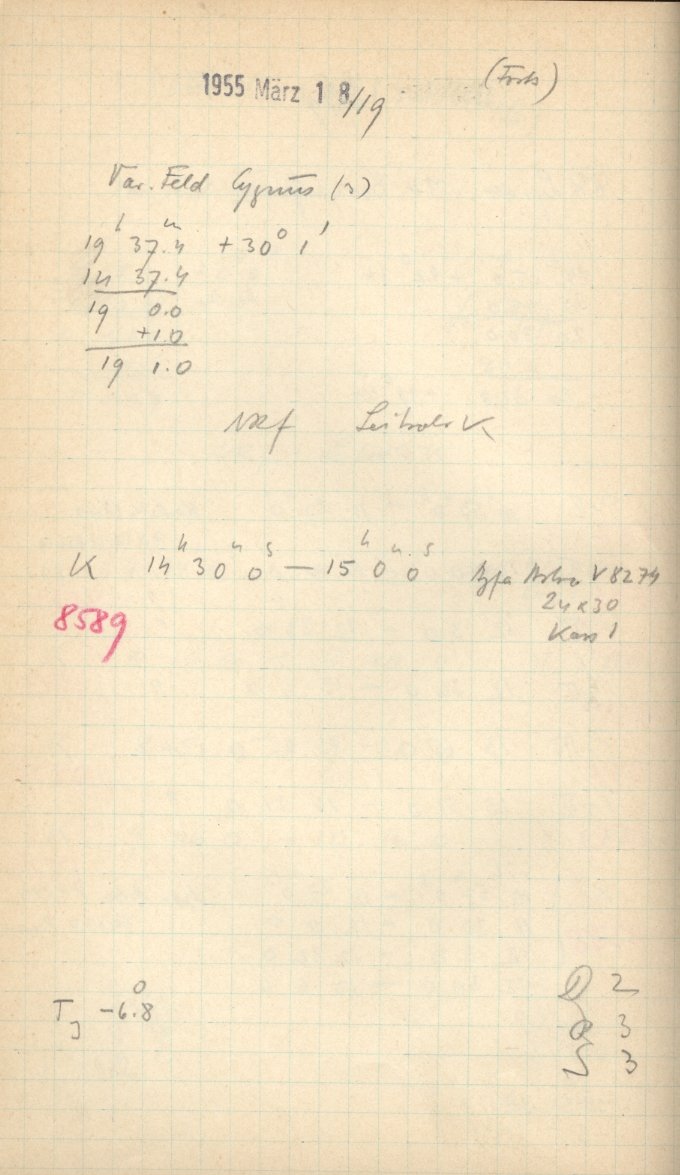 1955 März 18/19 (Forts)
Var. Feld Cygnus (3)
19h 37m.4 +30° 1'
14 37.4
19 0.0
+1.0
19 1.0
K 14h 30m 0s — 15h 0m 0s Agfa Astro V8274
8589 24x30
Kass 1
TJ -6°.8
D 2
R 3
S 3